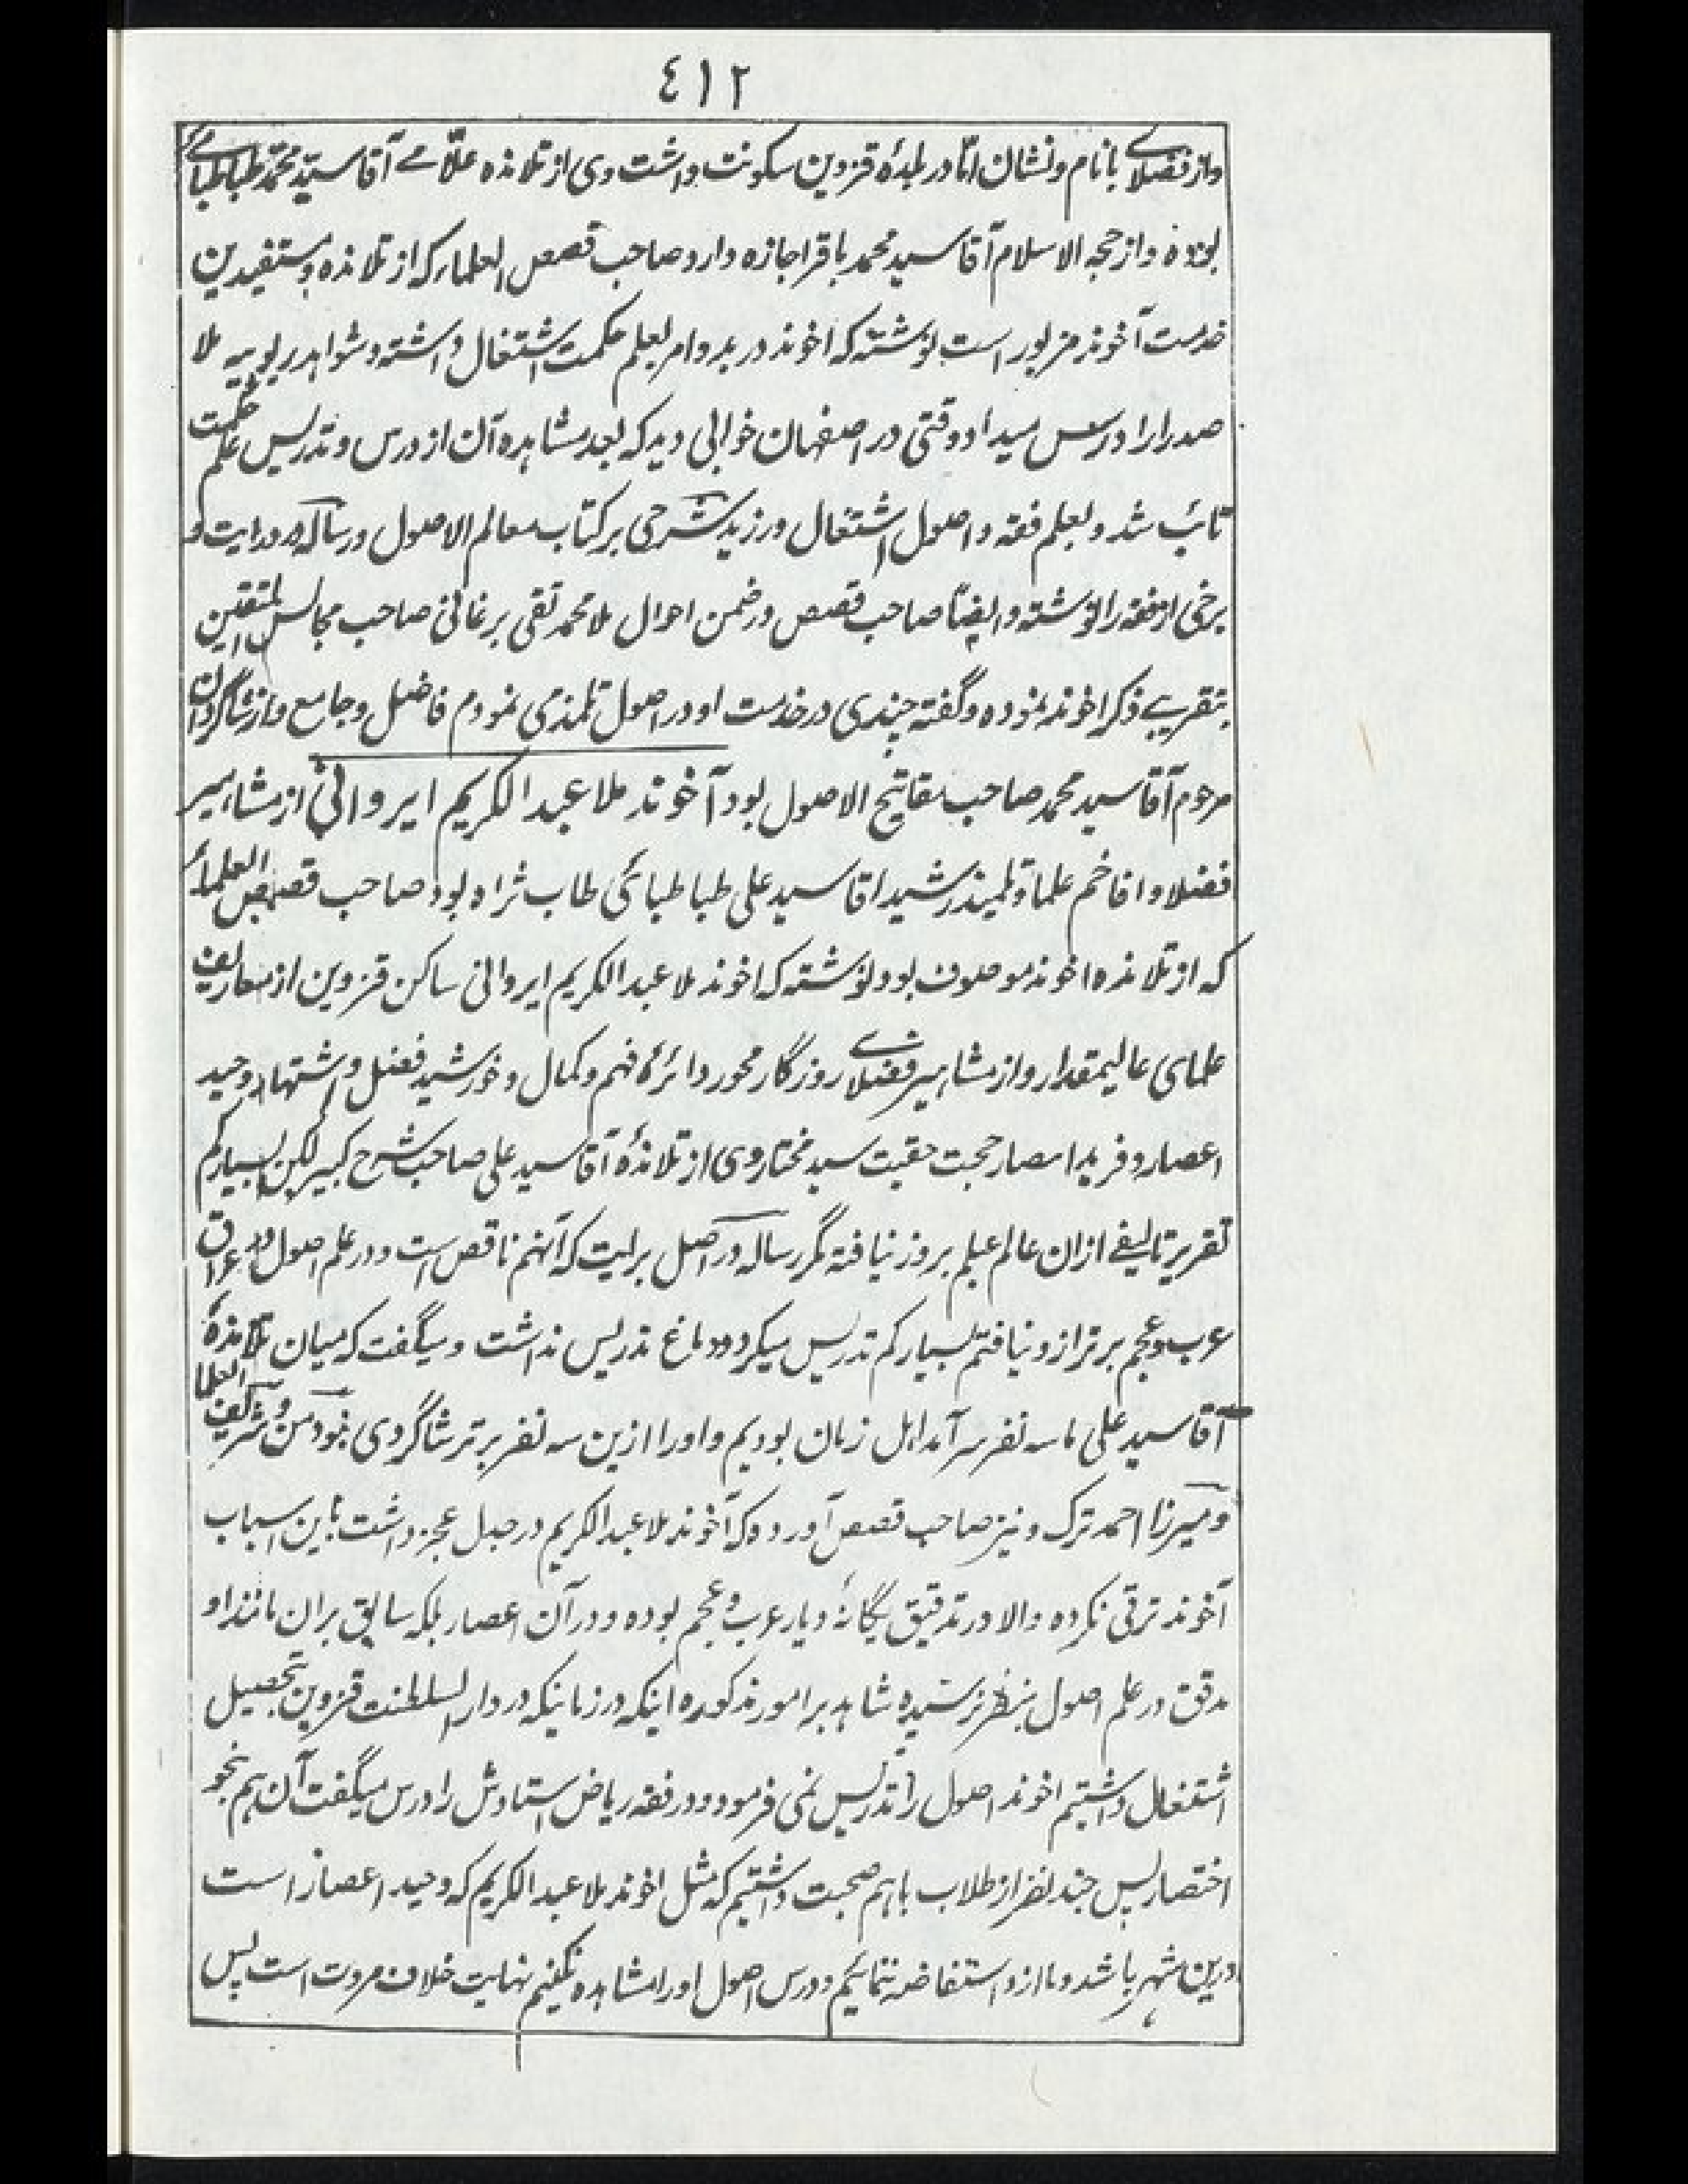 ٤١٢
و از فضلای با نام و نشان امّا در بلدهٔ قزوین سکونت داشت وی از تلامذه علّامی آقا سیّد محمّد طباطبائی
بوده و از حجه الاسلام آقا سید محمد باقر اجازه دارد صاحب قصص العلما که از تلامذه و مستفیدین
خدمت آخوند مزبور است نوشته که اخوند در بدو امر بعلم حکمت اشتغال داشته و شواهد ربوبیه ملا
صدرا را درس میداد وقتی در اصفهان خوابی دید که بعد مشاهده آن از درس و تدریس علم حکمت
تائب شد و بعلم فقه و اصول اشتغال ورزید شرحی بر کتاب معالم الاصول و رساله در درایت و
برخی از فقه را نوشته و ایضاً صاحب قصص در ضمن احوال ملا محمد تقی برغانی صاحب مجالس المتقین
بتقریبی ذکر اخوند نموده و گفته چندی در خدمت او در اصول تلمذی نمودم فاضل و جامع و از شاگردان
مرحوم آقا سید محمد صاحب مفاتیح الاصول بود آخوند ملا عبد الکریم ایروانی از مشاهیر
فضلا و افاخم علما و تلمیذ رشید اقا سید علی طباطبائی طاب ثراه بود صاحب قصص العلماء
که از تلامذه اخوند موصوف بود نوشته که اخوند ملا عبد الکریم ایروانی ساکن قزوین از معاریف
علمای عالیمقدار و از مشاهیر فضلای روزگار محور دائرهٔ فهم و کمال و خورشید فضل و اشتهار وحید
اعصار و فرید امصار حجت حقیت سید مختار وی از تلامذهٔ آقا سید علی صاحب شرح کبیر لکن بسیار کم
تقریر تالیفی ازان عالم علیم بروز نیافته مگر رساله در اصل برایت که آنهم ناقص است و در علم اصول در عراق
عرب و عجم برتر ازو نیافتم بسیار کم تدریس میکرد و دماغ تدریس نداشت و میگفت که میان تلامذهٔ
آقا سید علی ما سه نفر سرآمد اهل زمان بودیم و او را ازین سه نفر برتر شاگردی نبود من و شریف العلما
و میرزا احمد ترک و نیز صاحب قصص آورده که آخوند ملا عبد الکریم در جدل عجز داشت باین اسباب
آخوند ترقی نکرده والا در تدقیق یگانهٔ دیار عرب و عجم بوده و در آن اعصار بلکه سابق بران مانند او
مدقق در علم اصول بنظر نرسیده شاهد بر امور مذکوره اینکه در زمانیکه در دار السلطنت قزوین تحصیل
اشتغال داشتیم اخوند اصول را تدریس نمی فرمود و در فقه ریاض استادش را درس میگفت آن هم بنحو
اختصار پس چند نفر از طلاب باهم صحبت داشتیم که مثل اخوند ملا عبد الکریم که وحید اعصار است
درین شهر باشد و ما ازو استفاضه ننمائیم و درس اصول او را مشاهده نکنیم نهایت خلاف مروت است پس